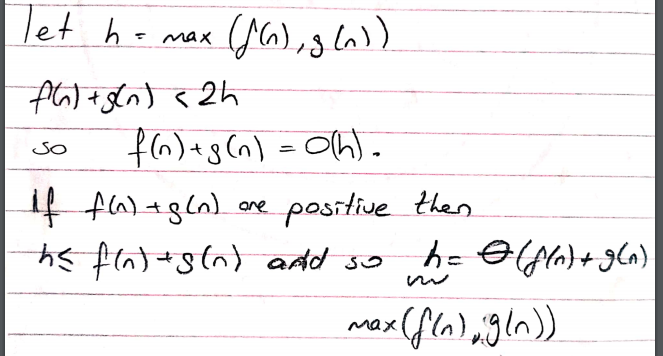 let h = max (f(n), g(n))
f(n) + g(n) < 2h
so f(n) + g(n) = O(h).
If f(n) + g(n) are positive then
h ≤ f(n) + g(n) add so h = Θ(f(n) + g(n)
max(f(n), g(n))